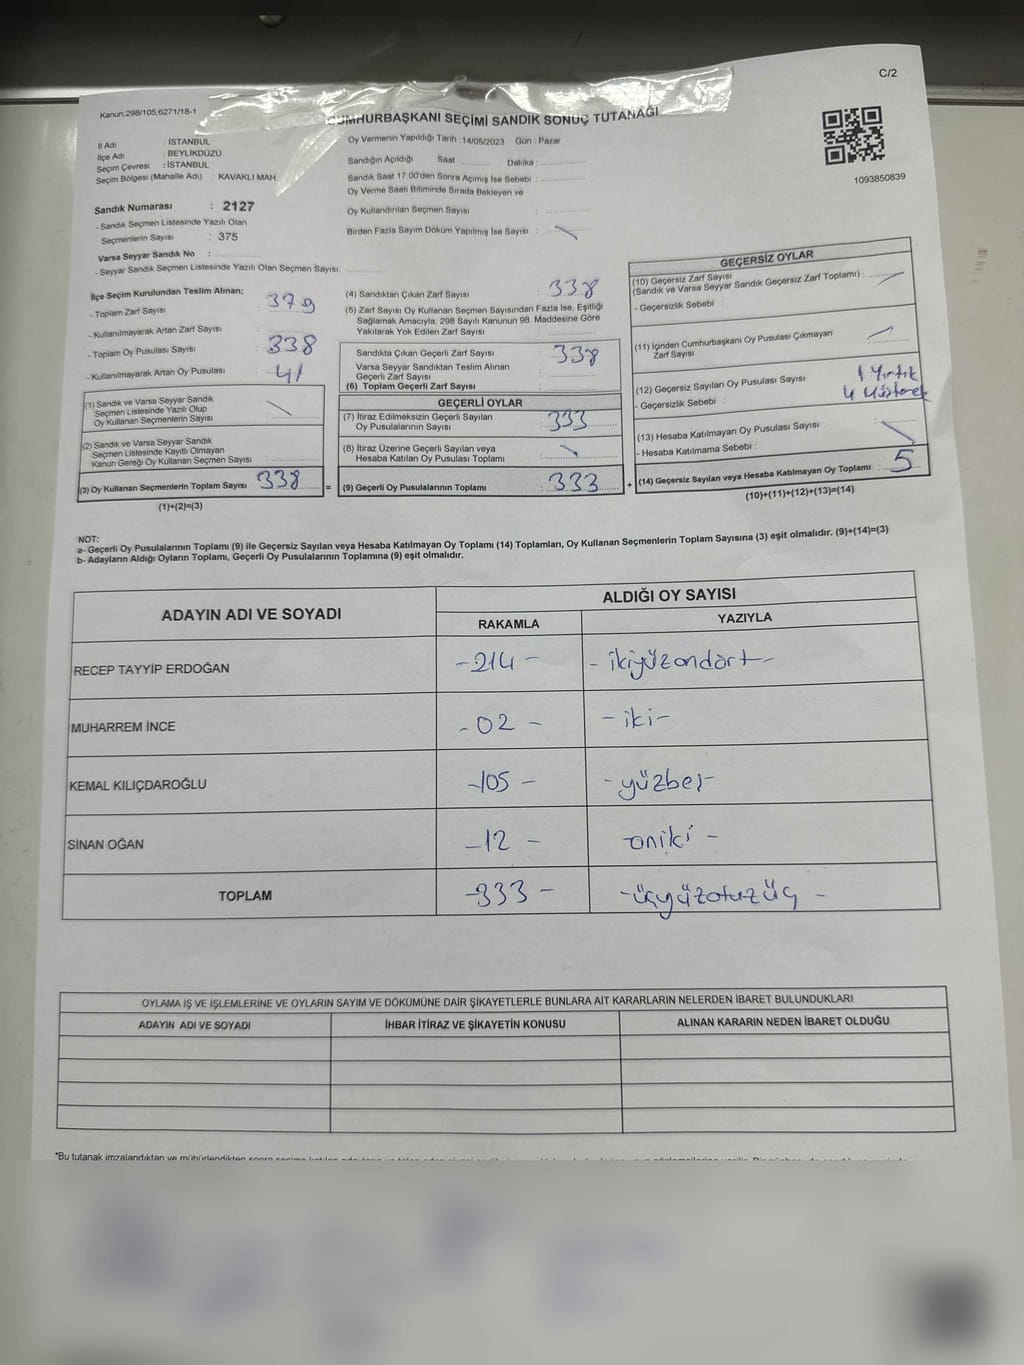 C/2
Kanun,298/105;6271/18-1
CUMHURBAŞKANI SEÇİMİ SANDIK SONUÇ TUTANAĞI
İl Adı : İSTANBUL
İlçe Adı : BEYLİKDÜZÜ
Seçim Çevresi : İSTANBUL
Seçim Bölgesi (Mahalle Adı) : KAVAKLI MAH.
Sandık Numarası : 2127
- Sandık Seçmen Listesinde Yazılı Olan
Seçmenlerin Sayısı : 375
Varsa Seyyar Sandık No :
- Seyyar Sandık Seçmen Listesinde Yazılı Olan Seçmen Sayısı
Oy Vermenin Yapıldığı Tarih : 14/05/2023 Gün : Pazar
Sandığın Açıldığı Saat Dakika :
Sandık Saat 17.00'den Sonra Açımış İse Sebebi :
Oy Verme Saati Bitiminde Sırada Bekleyen ve
Oy Kullandırılan Seçmen Sayısı :
Birden Fazla Sayım Döküm Yapılmış İse Sayısı :
1093850839
İlçe Seçim Kurulundan Teslim Alınan;
- Toplam Zarf Sayısı : 379
- Kullanılmayarak Artan Zarf Sayısı :
- Toplam Oy Pusulası Sayısı : 338
- Kullanılmayarak Artan Oy Pusulası : 41
(1) Sandık ve Varsa Seyyar Sandık
Seçmen Listesinde Yazılı Olup
Oy Kullanan Seçmenlerin Sayısı :
(2) Sandık ve Varsa Seyyar Sandık
Seçmen Listesinde Kayıtlı Olmayan
Kanun Gereği Oy Kullanan Seçmen Sayısı :
(3) Oy Kullanan Seçmenlerin Toplam Sayısı : 338 =
(1)+(2)=(3)
(4) Sandıktan Çıkan Zarf Sayısı : 338
(5) Zarf Sayısı Oy Kullanan Seçmen Sayısından Fazla İse, Eşitliği
Sağlamak Amacıyla, 298 Sayılı Kanunun 98. Maddesine Göre
Yakılarak Yok Edilen Zarf Sayısı :
Sandıkta Çıkan Geçerli Zarf Sayısı : 338
Varsa Seyyar Sandıktan Teslim Alınan
Geçerli Zarf Sayısı :
(6) Toplam Geçerli Zarf Sayısı :
GEÇERLİ OYLAR
(7) İtiraz Edilmeksizin Geçerli Sayılan
Oy Pusulalarının Sayısı : 333
(8) İtiraz Üzerine Geçerli Sayılan veya
Hesaba Katılan Oy Pusulası Toplamı :
(9) Geçerli Oy Pusulalarının Toplamı : 333 +
GEÇERSİZ OYLAR
(10) Geçersiz Zarf Sayısı
(Sandık ve Varsa Seyyar Sandık Geçersiz Zarf Toplamı) :
- Geçersizlik Sebebi :
(11) İçinden Cumhurbaşkanı Oy Pusulası Çıkmayan
Zarf Sayısı :
(12) Geçersiz Sayılan Oy Pusulası Sayısı : 1 Yırtık
- Geçersizlik Sebebi : 4 Müşterek
(13) Hesaba Katılmayan Oy Pusulası Sayısı
- Hesaba Katılmama Sebebi :
(14) Geçersiz Sayılan veya Hesaba Katılmayan Oy Toplamı : 5
(10)+(11)+(12)+(13)=(14)
NOT:
a- Geçerli Oy Pusulalarının Toplamı (9) ile Geçersiz Sayılan veya Hesaba Katılmayan Oy Toplamı (14) Toplamları, Oy Kullanan Seçmenlerin Toplam Sayısına (3) eşit olmalıdır. (9)+(14)=(3)
b- Adayların Aldığı Oyların Toplamı, Geçerli Oy Pusulalarının Toplamına (9) eşit olmalıdır.
ADAYIN ADI VE SOYADI ALDIĞI OY SAYISI
RAKAMLA YAZIYLA
RECEP TAYYİP ERDOĞAN -214- -ikiyüzondört-
MUHARREM İNCE -02- -iki-
KEMAL KILIÇDAROĞLU -105- -yüzbeş-
SİNAN OĞAN -12- -oniki-
TOPLAM -333- -üçyüzotuzüç-
OYLAMA İŞ VE İŞLEMLERİNE VE OYLARIN SAYIM VE DÖKÜMÜNE DAİR ŞİKAYETLERLE BUNLARA AİT KARARLARIN NELERDEN İBARET BULUNDUKLARI
ADAYIN ADI VE SOYADI İHBAR İTİRAZ VE ŞİKAYETİN KONUSU ALINAN KARARIN NEDEN İBARET OLDUĞU
*Bu tutanak imzalandıktan ve mühürlendikten sonra